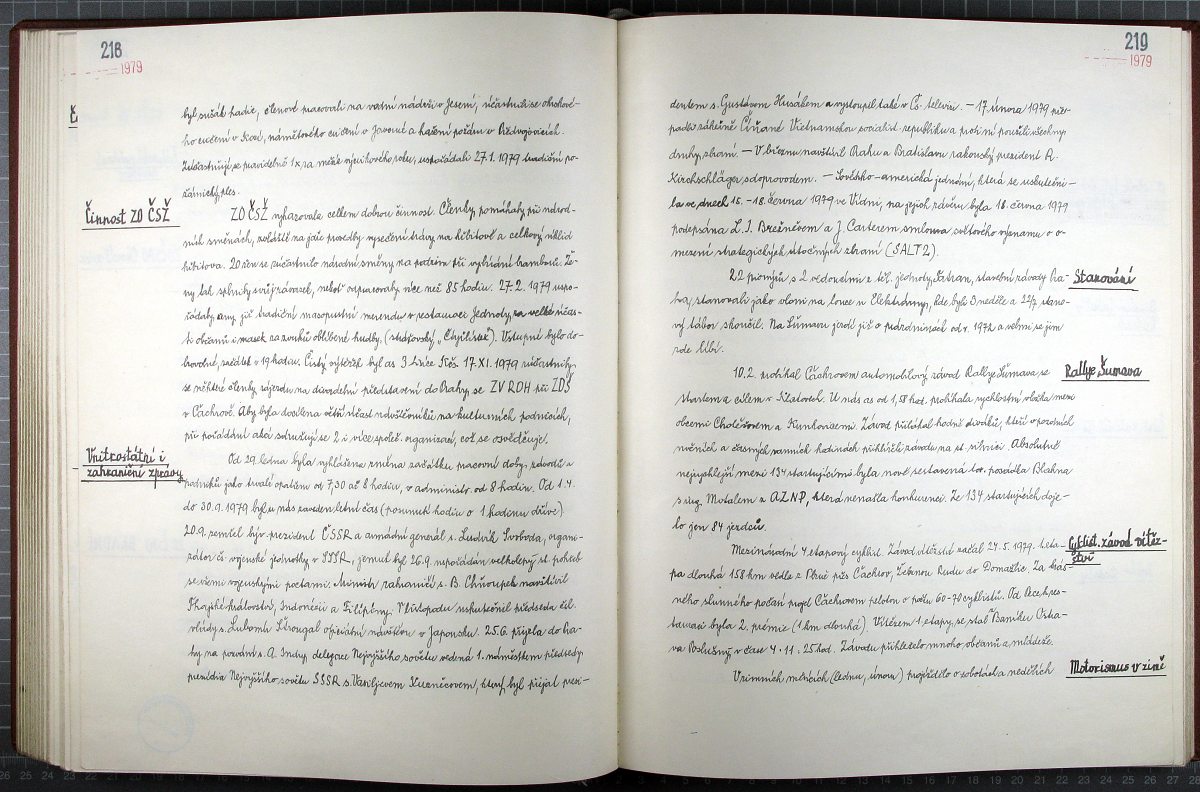 218
1979
byl sušák hadic, členové pracovali na vodní nádrži v Jesení, účastnili se okrskové-
ho cvičení v
námětového cvičení v Javorné a hašení požáru v
Zúčastňují se pravidelně 1x za měsíc výcvikového roku, uspořádali 27.1.1979 tradiční po-
žárnický ples.
Činnost ZO ČSŽ
ZO ČSŽ vykazovala celkem dobrou činnost. Členky pomáhaly při národ-
ních směnách, zvláště na jaře provedly vysečení trávy na hřbitově a celkový úklid
hřbitova. 20 žen se zúčastnilo národní směny na podzim při vybírání brambor. Že-
ny tak splnily svůj závazek, neboť odpracovaly více než 85 hodin. 27.2.1979 uspo-
řádaly ženy již tradiční masopustní merendu v restauraci Jednoty, za velké účas-
ti občanů i masek za zvuků oblíbené hudby. (sušický „Chylištěž"). Vstupné bylo do-
brovolné, začátek v 19 hodin. Čistý výtěžek byl as 3 tisíce Kčs. 17.XI.1979 účastnily
se některé členky zájezdu na divadelní představení do Prahy, se ZV ROH při ZDŠ
v Čachrově. Aby byla docílena větší účast návštěvníků na kulturních podnicích,
při pořádání akcí sdružují se 2 i více společ. organizací, což se osvědčuje.
Vnitrostátní i
zahraniční zprávy
Od 29. ledna byla vyhlášena změna začátku pracovní doby, závodů a
podniků jako trvalé opatření od 7,30 až 8 hodin, v administr. od 8 hodin. Od 1.4.
do 30.9.1979 byl u nás zaveden letní čas (posunutí hodin o 1 hodinu dříve)
20.9. zemřel býv. prezident ČSSR a armádní generál s. Ludvík Svoboda, organi-
zátor čs. vojenské jednotky v SSSR, jemuž byl 26.9. uspořádán velkolepý st. pohřeb
se všemi vojenskými poctami. Ministr zahraničí s. B. Chňoupek navštívil
Thajské království, Indonésii a Filipíny. V listopadu uskutečnil předseda čsl.
vlády s. Lubomír Štrougal oficiální návštěvu v Japonsku. 25.6. přijela do Pra-
hy na pozvání s. A. Indry, delegace Nejvyššího sovětu vedená 1. náměstkem předsedy
prezidia Nejvyššího sovětu SSSR s. Vasiljevem Kuzněcovem, který byl přijat prezi-
219
1979
dentem s. Gustávem Husákem a vystoupil také v Čs. televizi. – 17. února 1979 pře-
padli zákeřně Číňané Vietnamskou socialist. republiku a proti ní použili všechny
druhy zbraní. – V březnu navštívil Prahu a Bratislavu rakouský prezident R.
Kirchschläger s doprovodem. – Sovětsko-americká jednání, která se uskutečni-
la ve dnech 15. – 18. června 1979 ve Vídni, na jejich závěr byla 18. června 1979
podepsána L. I. Brežněvem a J. Carterem smlouva světového významu o o-
mezení strategických útočných zbraní (SALT 2).
Stanování
22 pionýrů s 2 vedoucími z těl. jednoty Tatran, stavební závody Pra-
ha, stanovali jako vloni na louce u Elektrárny, kde byli 3 neděle a 22/7 stano-
vý tábor skončil. Na Šumavu jezdí již o prázdninách od r. 1972 a velmi se jim
zde líbí.
Rallye Šumava
10.2. probíhal Čachrovem automobilový závod Rallye Šumava se
startem a cílem v Klatovech. U nás as od 1,58 hod. probíhala rychlostní vložka mezi
obcemi Chotěšovem a Kunkovicemi. Závod přilákal hodně diváků, kteří v pozdních
nočních a časných ranních hodinách přihlíželi závodu na st. silnici. Absolutně
nejrychlejší mezi 134 startujícími byla nově sestavená tov. posádka Blahna
s ing. Motalem z AZNP, která nenašla konkurenci. Ze 134 startujících doje-
lo jen 84 jezdců.
Cyklist. závod vítěz-
ství
Mezinárodní 4 etapový cyklist. Závod vítězství začal 24.5.1979. 1.eta-
pa dlouhá 158 km vedla z Plzně přes Čachrov, Železnou Rudu do Domažlic. Za krás-
ného slunného počasí projel Čachrovem peloton o počtu 60-70 cyklistů. Od
byla 2. prémie (1 km dlouhá). Vítězem 1. etapy se stal Baníku Ostra-
va Poslušný v čase 4:11:25 hod. Závodu přihlíželo mnoho občanů a mládeže.
Motorismus v zimě
V zimních měsících (lednu, únoru) projíždělo o sobotách a nedělích